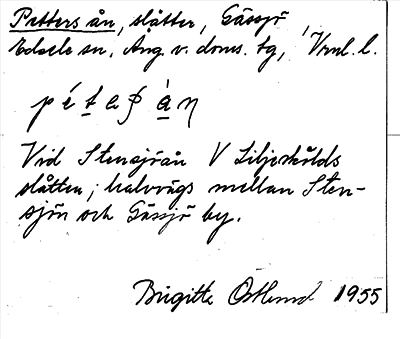 Petters ån, slåtter, Gässjö
Edsele sn, Ång. v. doms. tg, Vrnl. l.
Vid Stensjöån V Liljerkölds
slåtten; halvvägs mellan Sten-
sjön och Gässjö by.
Birgitte Östlund 1955